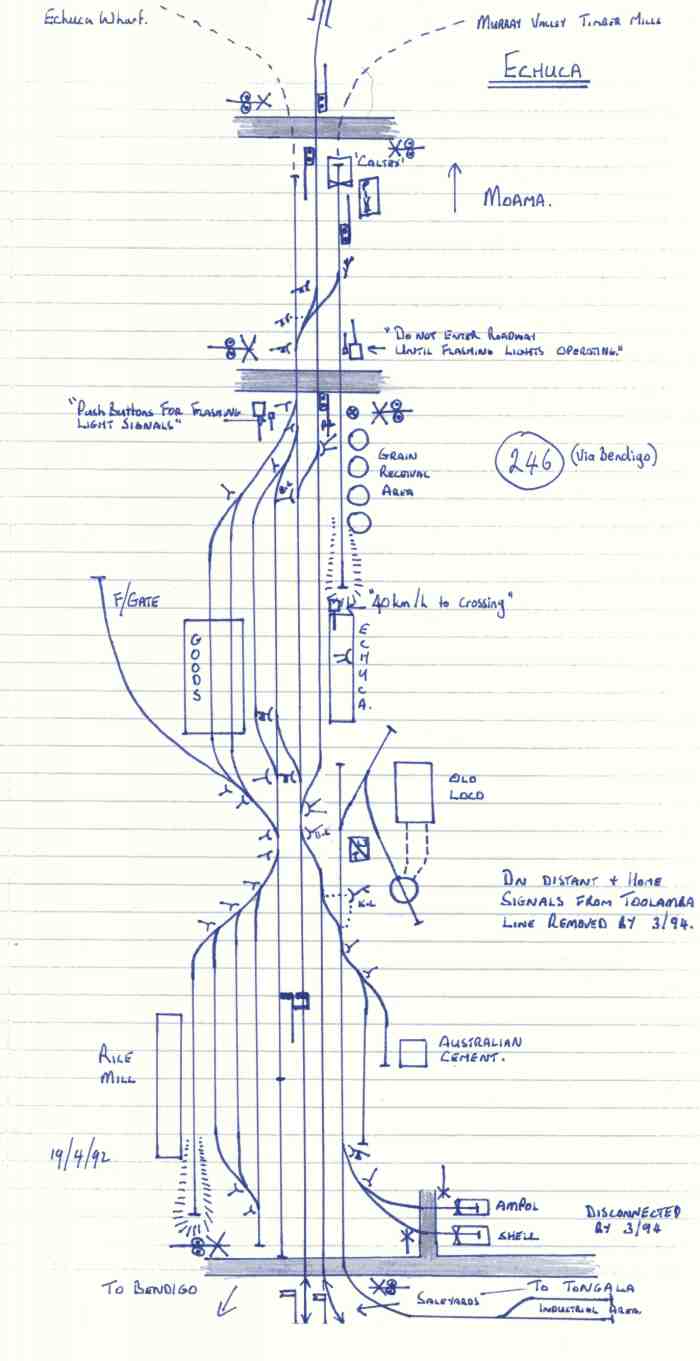 Echuca Wharf.
Murray Valley Timber Mills
Echuca
'Caltex'
Moama.
"Do not enter Roadway
Until Flashing Lights Operating."
"Push Buttons For Flashing
Light Signals"
Grain
Receival
Area
246 (Via Bendigo)
F/Gate
"40 km/h to Crossing"
GOODS
ECHUCA.
Old
Loco
Dn Distant + Home
Signals from Toolamba
Line Removed by 3/94.
Australian
Cement.
Rice
Mill
19/4/92
Ampol
Shell
Disconnected
by 3/94
To Bendigo
Saleyards
To Tongala
Industrial Area